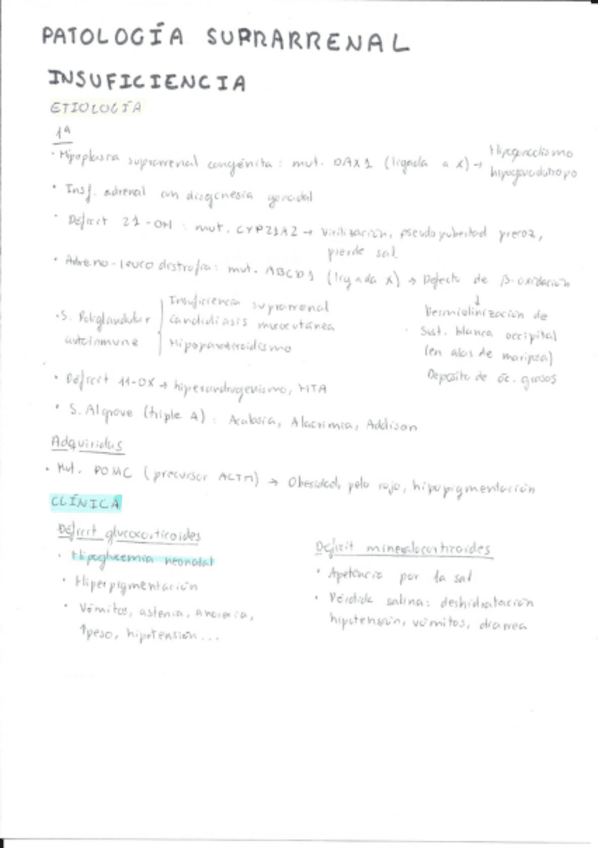 PATOLOGÍA SUPRARRENAL
INSUFICIENCIA
ETIOLOGÍA
1ª
· Hipoplasia suprarrenal congénita: mut. DAX1 (ligada a X) → Hipogonadismo
hipogonadotropo
· Insf. adrenal con disgenesia gonadal
· Déficit 21-OH: mut. CYP21A2 → Virilización, pseudopubertad precoz,
pierde sal
· Adreno-leuco distrofia: mut. ABCD1 (ligada X) → Defecto de β-oxidación
↓
Desmielinización de
sust. blanca occipital
(en alas de mariposa)
Depósito de ác. grasos
· S. Poliglandular
autoinmune
Insuficiencia suprarrenal
candidiasis mucocutánea
Hipoparatiroidismo
· Déficit 11-OX → hiperandrogenismo, HTA
· S. Algrove (triple A): Acalasia, Alacrimia, Addison
Adquiridas
· Mut. POMC (precursor ACTH) → Obesidad, pelo rojo, hipopigmentación
CLÍNICA
Déficit glucocorticoides
· Hipoglucemia neonatal
· Hiperpigmentación
· Vómitos, astenia, anorexia,
↑peso, hipotensión...
Déficit mineralocorticoides
· Apetencia por la sal
· Pérdida salina: deshidratación
hipotensión, vómitos, diarrea